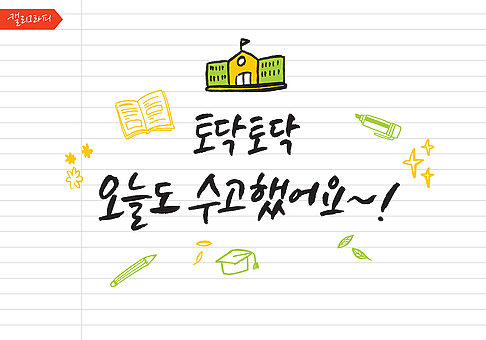 캘리그라피
토닥토닥
오늘도 수고했어요~!